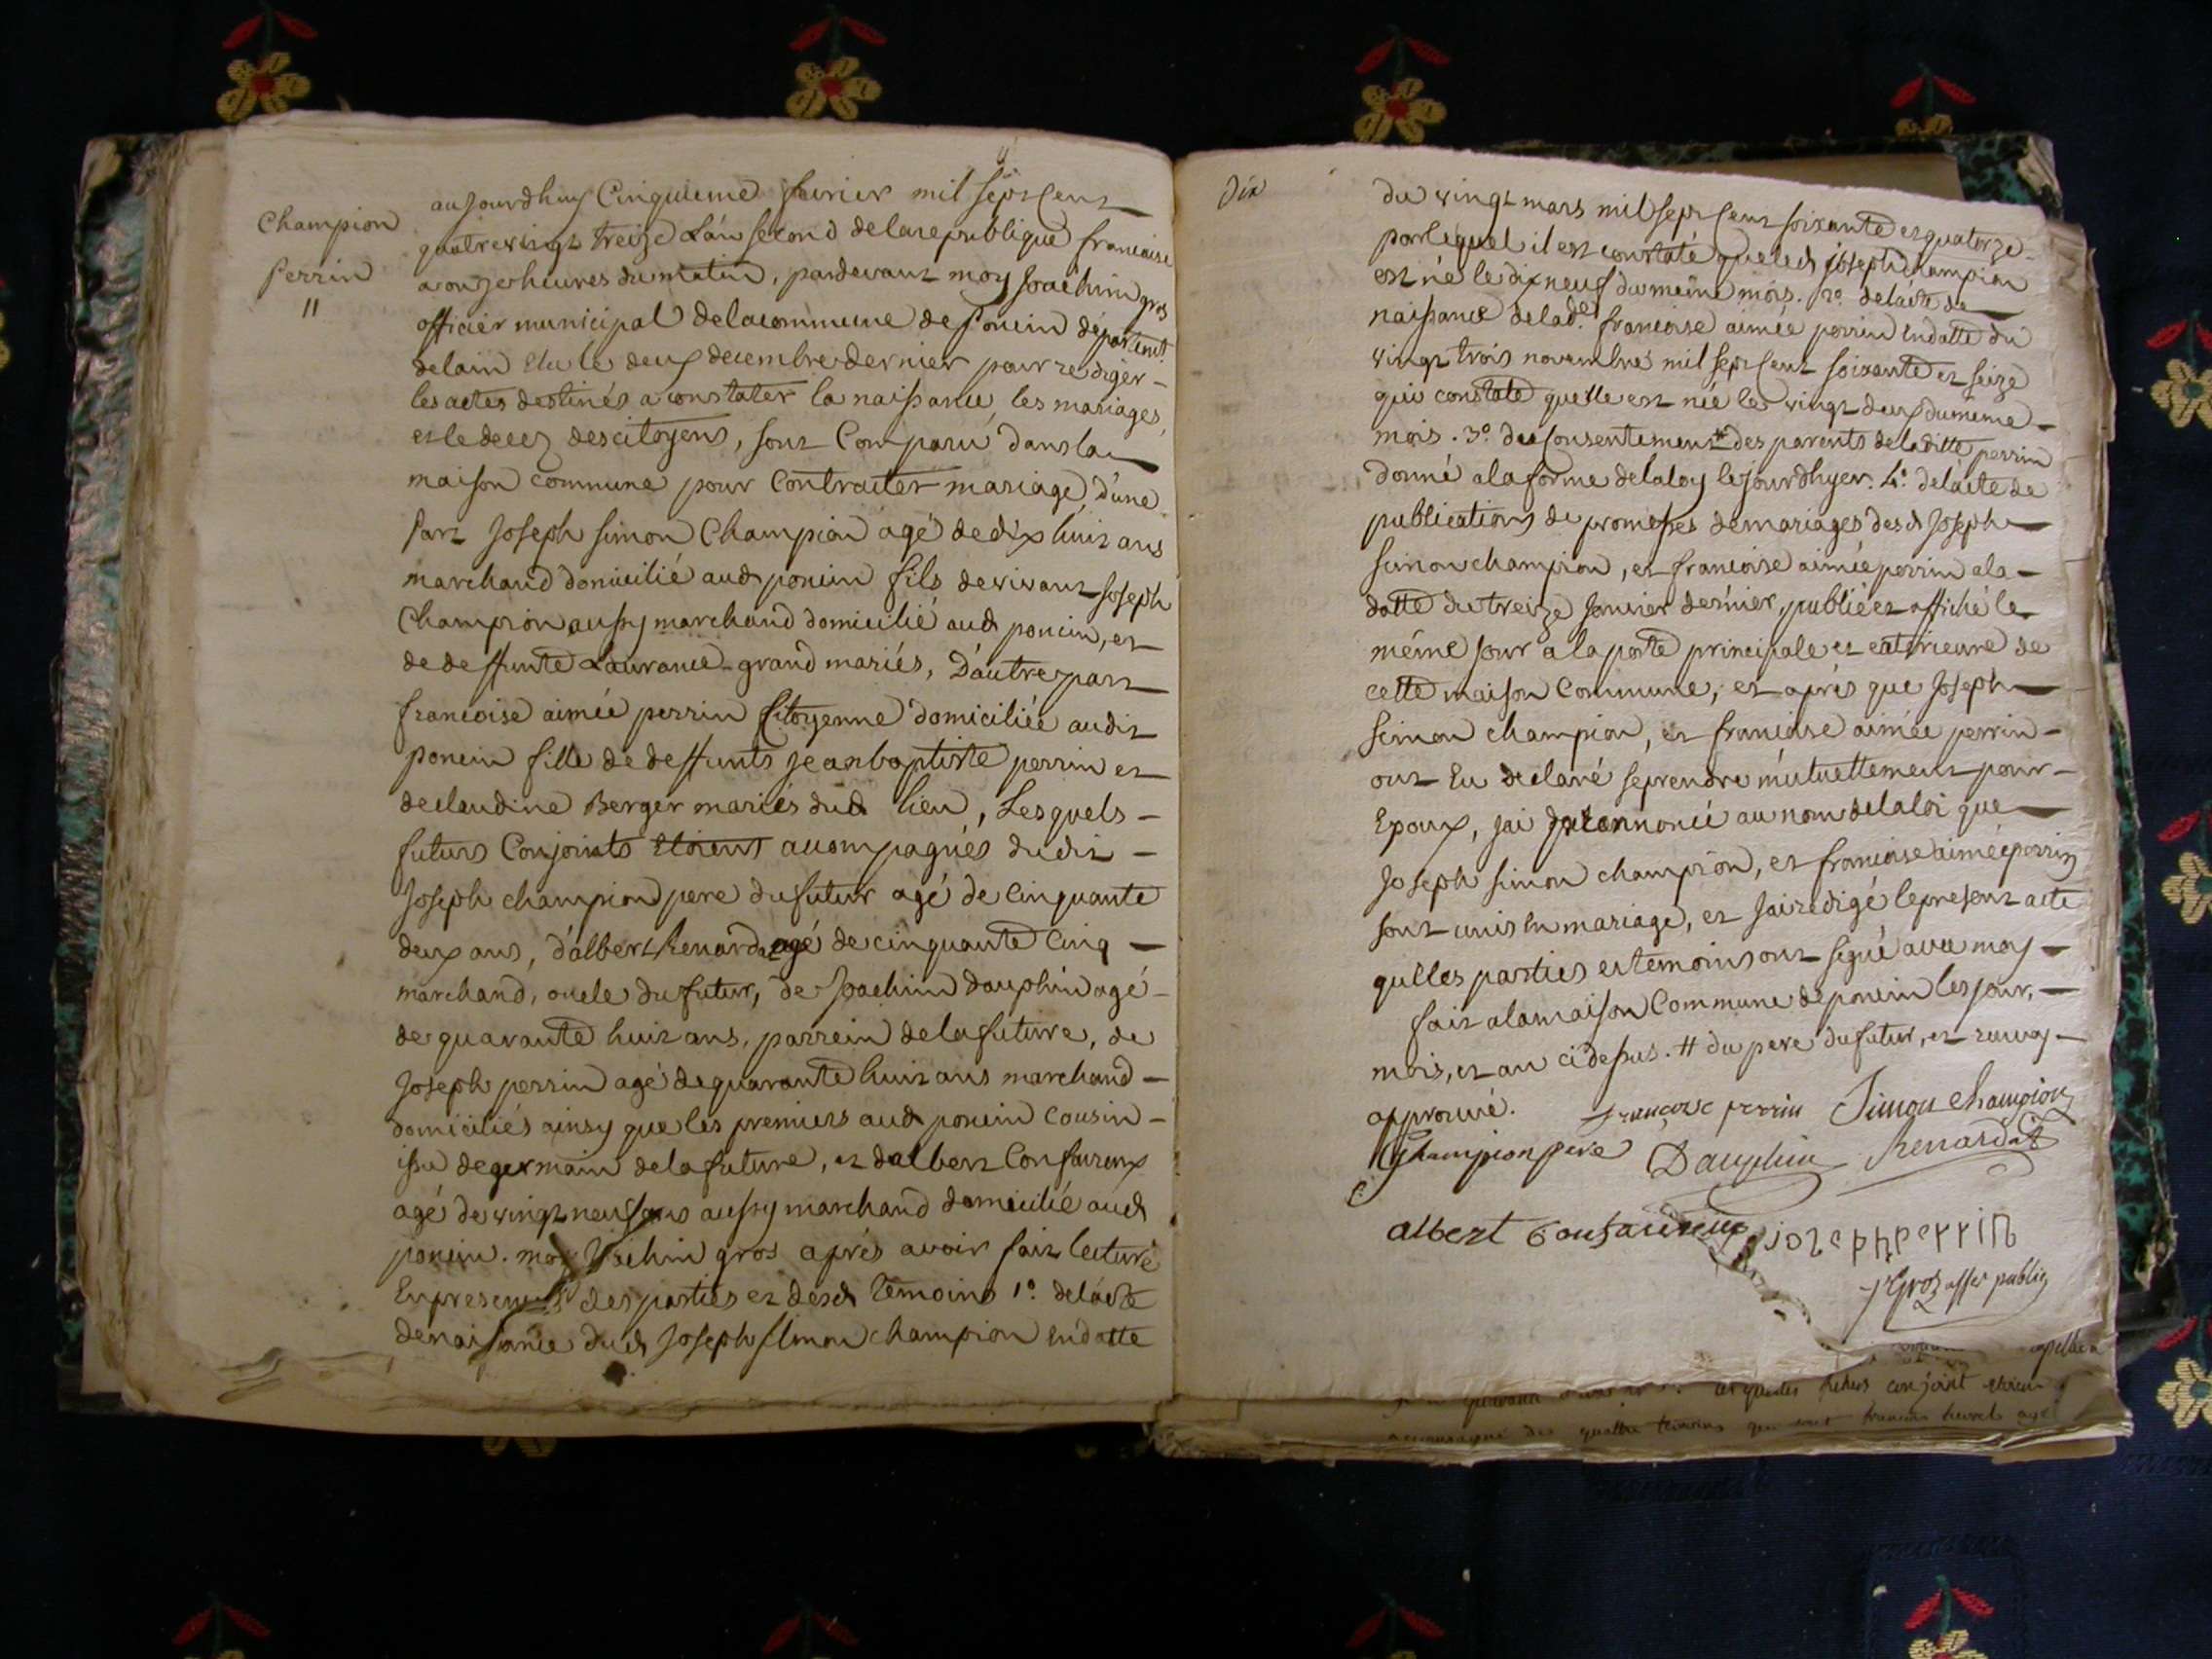 Champion
Perrin
11
aujourdhuy Cinquieme fevrier mil sept Cent
quatrevingt treize L'an second delarepublique francaise
a onze heures du matin, pardevant moy Joachim gros
officier municipal delacommune de Poncin départemt
delain Elu le deux decembre dernier pour rediger
les actes destinés a constater la naissance, les mariages,
et le decez des citoyens, sont Comparu dans la
maison commune pour Contracter mariage, d'une
Part Joseph simon Champion agé de dix huit ans
marchand domicilié aud poncin fils de vivant Joseph
Champion aussy marchand domicilié aud poncin, et
de deffunte Laurance grand mariés, D'autre part
francoise aimée perrin Citoyenne domiciliée audit
poncin fille de deffunts jean baptiste perrin et
de claudine Berger mariés dud lieu, Lesquels
futurs Conjoints Etoient accompagnés dudit
Joseph champion pere du futur agé de Cinquante
deux ans, d'albert Renardat agé de cinquante Cinq
marchand, oncle du futur, de Joachim Dauphin agé
de quarante huit ans, parrein de la future, de
Joseph perrin agé de quarante huit ans marchand
domiciliés ainsy que les premiers aud poncin Cousin
issu de germain de la future, et d'albert
agé de vingt neuf ans aussy marchand domicilié aud
poncin. moy Joachim gros aprés avoir fait lecture
En presence des parties et desd temoins 1º. de l'acte
de naissance dud Joseph Simon champion En datte
Dix
du vingt mars mil sept Cent soixante et quatorze
par lequel il est constaté que led joseph champion
est né le dix neuf du même mois. 2º. de l'acte de
naissance de lade. francoise aimée perrin En datte du
vingt trois novembre mil sept Cent soixante et seize
qui constate quelle est née le vingt deux du meme
mois. 3º. du Consentement # des parents de laditte perrin
donné a la forme de la loy le jourdhyer. 4º. de l'acte de
publications de promesses de mariages desd Joseph
simon champion, et francoise aimée perrin a la
datte du treize janvier dernier, publié et affiché le
même jour a la porte principale et exterieure de
cette maison Commune, et aprés que Joseph
simon champion, et francoise aimée perrin
ont Eu declaré se prendre mutuellement pour
Epoux, jai prononcé au nom de la loi que
Joseph simon champion, et francoise aimée perrin
sont unis En mariage, et jai redigé le present acte
que les parties et temoins ont signé avec moy
fait a la maison Commune de poncin les jour,
mois, et an ci dessus. # du pere du futur, et renvoy
approuvé.
françoise perrin Simon Champion
Champion pere Dauphin Renardat
albert
josephperrin
J Gros offer public
conjoint
accompagné des quattre temoins qui sont francois agé